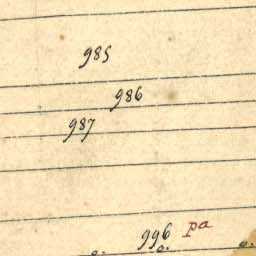 985
986
987
996 pa
o. o. o.